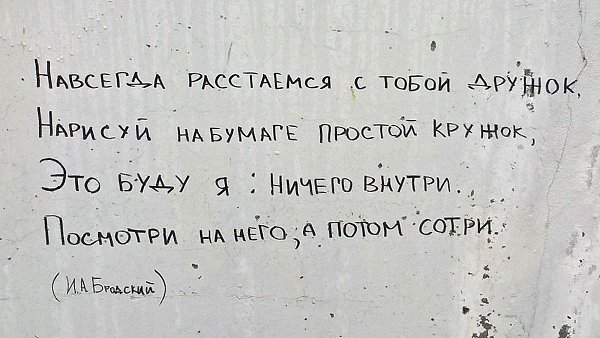 НАВСЕГДА РАССТАЕМСЯ С ТОБОЙ ДРУЖОК,
НАРИСУЙ НА БУМАГЕ ПРОСТОЙ КРУЖОК,
ЭТО БУДУ Я : НИЧЕГО ВНУТРИ.
ПОСМОТРИ НА НЕГО, А ПОТОМ СОТРИ.
(И.А Бродский)